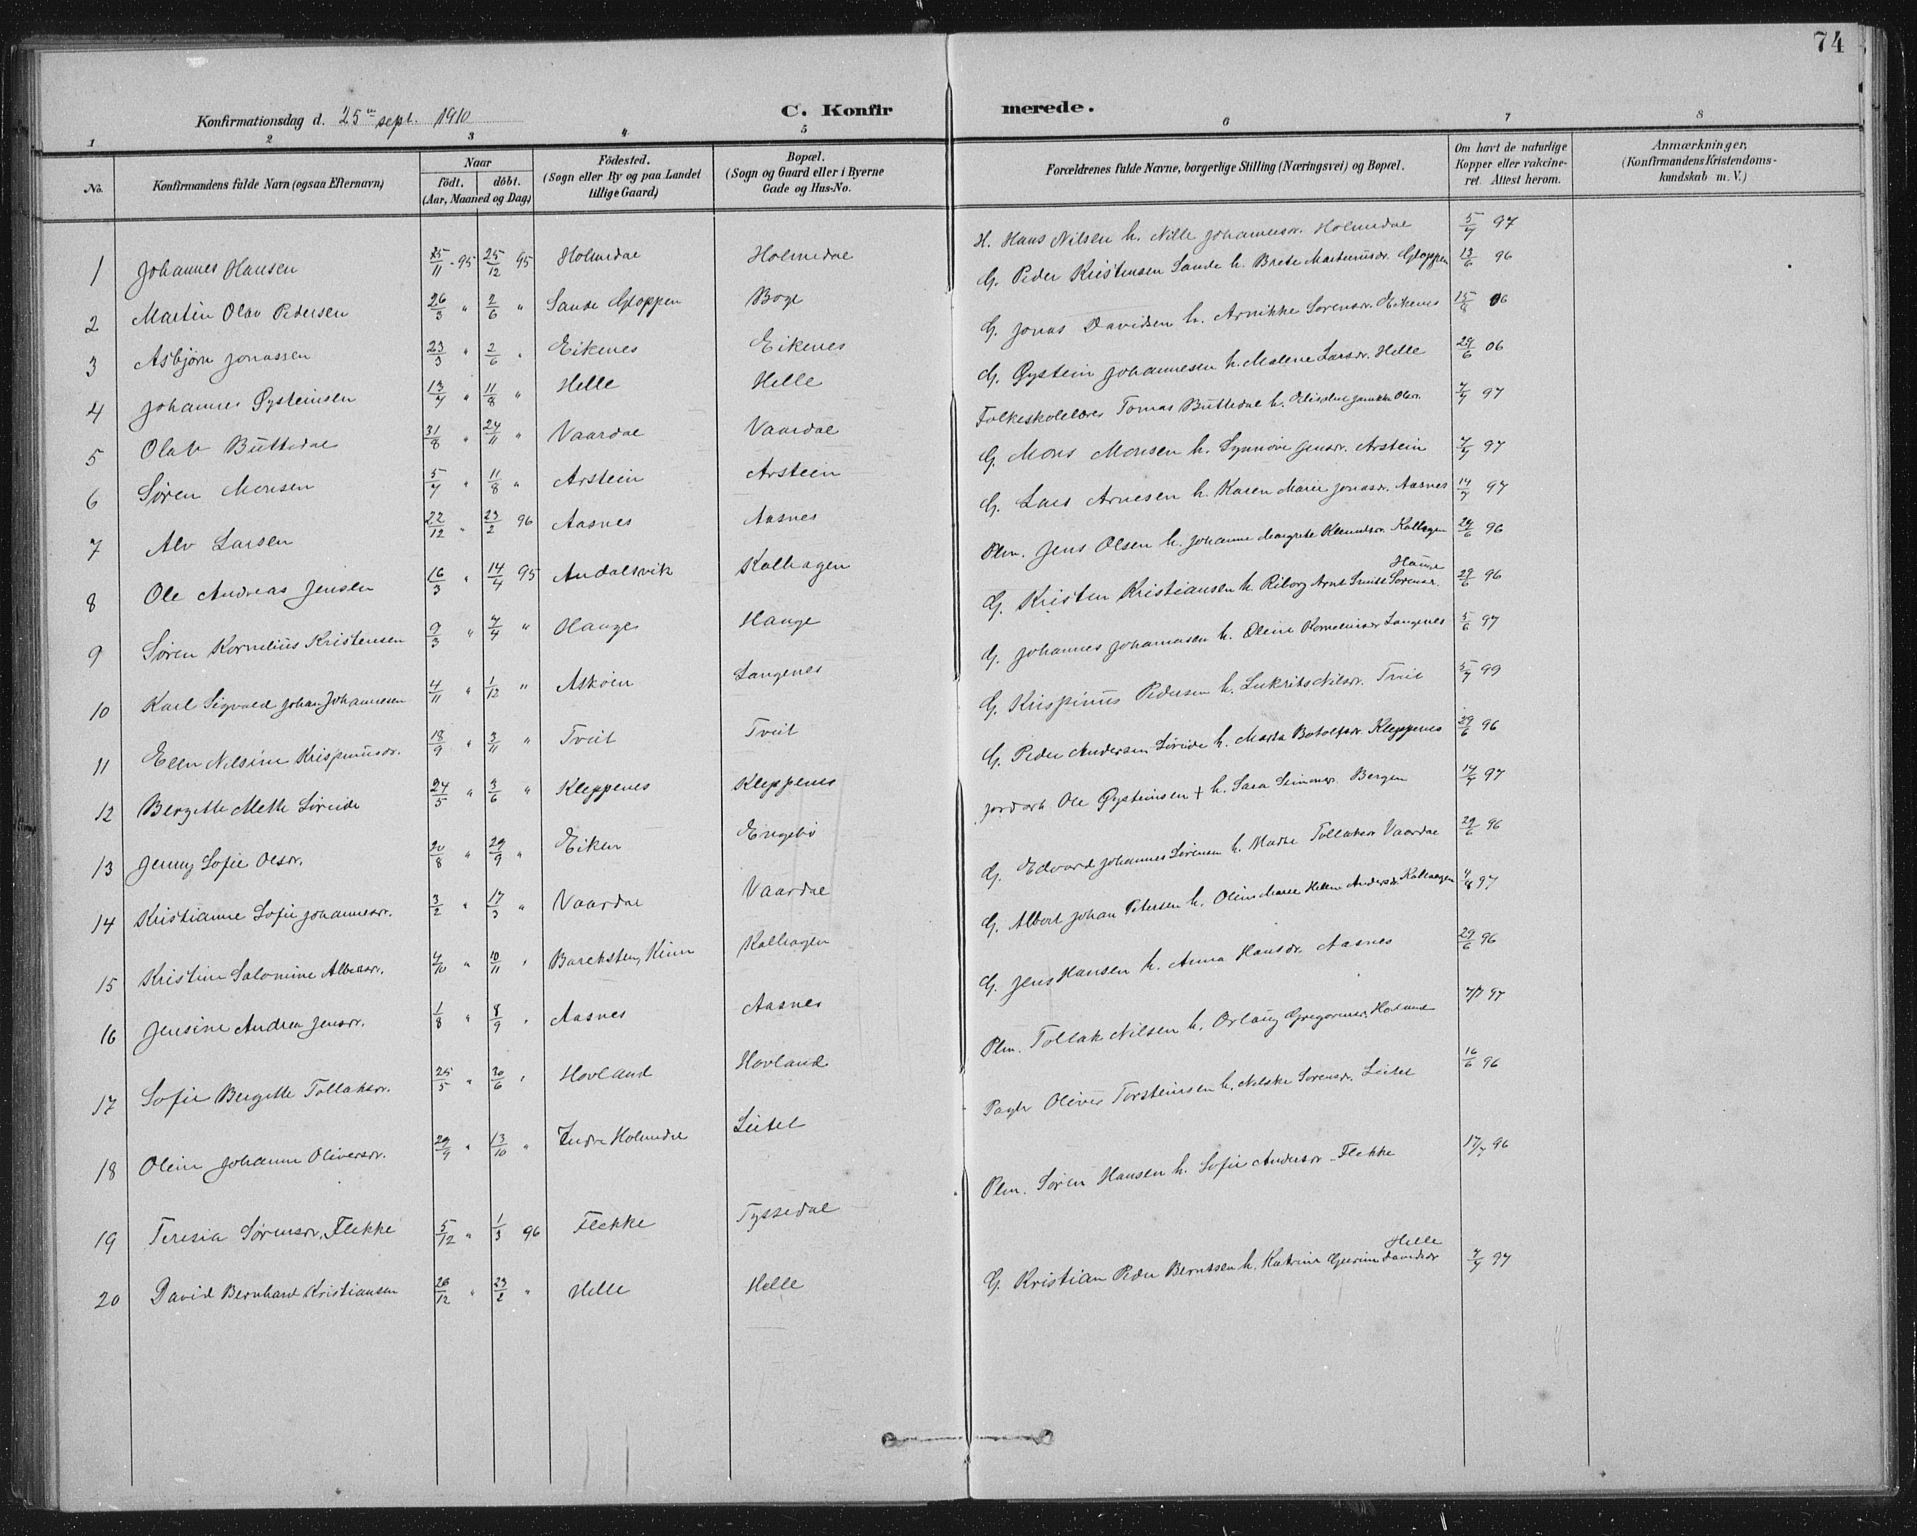 74
Konfirmationsdag d. 25de sept. 1910
C. Konfirmerede.
1 2 3 4 5 6 7 8
No. Konfirmandens fulde Navn (ogsaa Efternavn) Naar Födt. döbt. (Aar, Maaned og Dag) Födested. (Sogn eller By og paa Landet tillige Gaard) Bopæl. (Sogn og Gaard eller i Byerne Gade og Hus-No. Forældrenes fulde Navne, borgerlige Stilling (Næringsvei) og Bopæl. Om havt de naturlige Kopper eller vakcineret. Attest herom. Anmærkninger. (Konfirmandens Kristendomskundskab m. V.)
1 Johannes Hansen 25/11 - 95 25/12 95 Holmedal Holmedal H. Hans Nilsen h. Nille Johannesdr. Holmedal 5/7 97
2 Martin Olav Pedersen 26/3 " 2/6 " Sande Gloppen Boge G. Peder Kristensen Sande h. Brete Martinusdr. Gloppen 13/6 96
3 Asbjørn Jonassen 23/3 " 2/6 " Eikenes Eikenes G. Jonas Davidsen h. Arnikke Sørensdr. Eikenes 15/8 06
4 Johannes Øysteinsen 13/7 " 11/8 " Helle Helle G. Øystein Johannesen h. Malene Larsdr. Helle 29/6 06
5 Olav Buttedal 31/8 " 24/11 " Vaardal Vaardal Folkeskolelærer Tomas Buttedal h. 7/7 97
6 Søren Monsen 5/7 " 11/8 " Arstein Arstein G. Mons Monsen h. Synnøve Jensdr. Arstein 7/7 97
7 Alv Larsen 22/12 " 23/2 96 Aasnes Aasnes G. Lars Arnesen h. Karen Marie Jonasdr. Aasnes 14/7 97
8 Ole Andreas Jensen 16/3 " 14/4 95 Andalsvik Kalhagen Plm. Jens Olsen h. Johanne Margrete Klemetsdr. Kalhagen 29/6 96
9 Søren Kornelius Kristensen 9/3 " 7/4 " Hauge Hauge G. Kristen Kristiansen h. Riborg Arnt Smitt Sørensdr. Hauge 29/6 96
10 Karl Sigvald Johan Johannesen 4/11 " 1/12 " Askøen Langenes G. Johannes Johannesen h. Oline Korneliusdr. Langenes 5/6 97
11 Ellen Nilsine Krispinusdr. 18/9 " 3/11 " Tveit Tveit G. Krispinus Pedersen h. Lukrits Nilsdr. Tveit 5/7 99
12 Bergette Mette Løreide 24/5 " 3/6 " Kleppenes Kleppenes G. Peder Andersen Løreide h. Marta Botolfsdr. Kleppenes 29/6 96
13 Jenny Sofie Olsdr. 20/8 " 29/9 " Eiken Engebø Jordarb Ole Øysteinsen + h. Sara Bergen 14/7 97
14 Kristianne Sofie Johannesdr. 3/2 " 17/3 " Vaardal Vaardal G. Edvard Johannes Sørensen h. Marte Tollaksdr. Vaardal 29/6 96
15 Kristine Salomine Albertsdr. 4/10 " 10/11 " Bareksten, Kinn Kalhagen G. Albert Johan Petersen h. Oline Marie Helene Andersdr. Kalhagen 4/8 97
16 Jensine Andrea Jensdr. 1/8 " 8/9 " Aasnes Aasnes G. Jens Hansen h. Anna Hansdr. Aasnes 29/6 96
17 Sofie Bergette Tollaksdr. 25/5 " 30/6 " Hovland Hovland Plm. Tollak Nilsen h. Orlaug Gregoriusdr. Hovland 7/7 97
18 Oline Johanne Oliversdr. 29/9 " 13/10 " Indre Holmedal Leitet Oliver Torsteinsen h. Nilske Sørensdr. Leitet 16/6 96
19 Teresia Sørensdr. Flekke 5/12 " 1/3 96 Flekke Tyssedal Plm. Søren Hansen h. Sofie Andersdr. Flekke 17/7 96
20 David Bernhard Kristiansen 26/12 " 23/2 " Helle Helle G. Kristian Peder Berntsen h. Katrine Gurine Davidsdr Helle 7/7 97